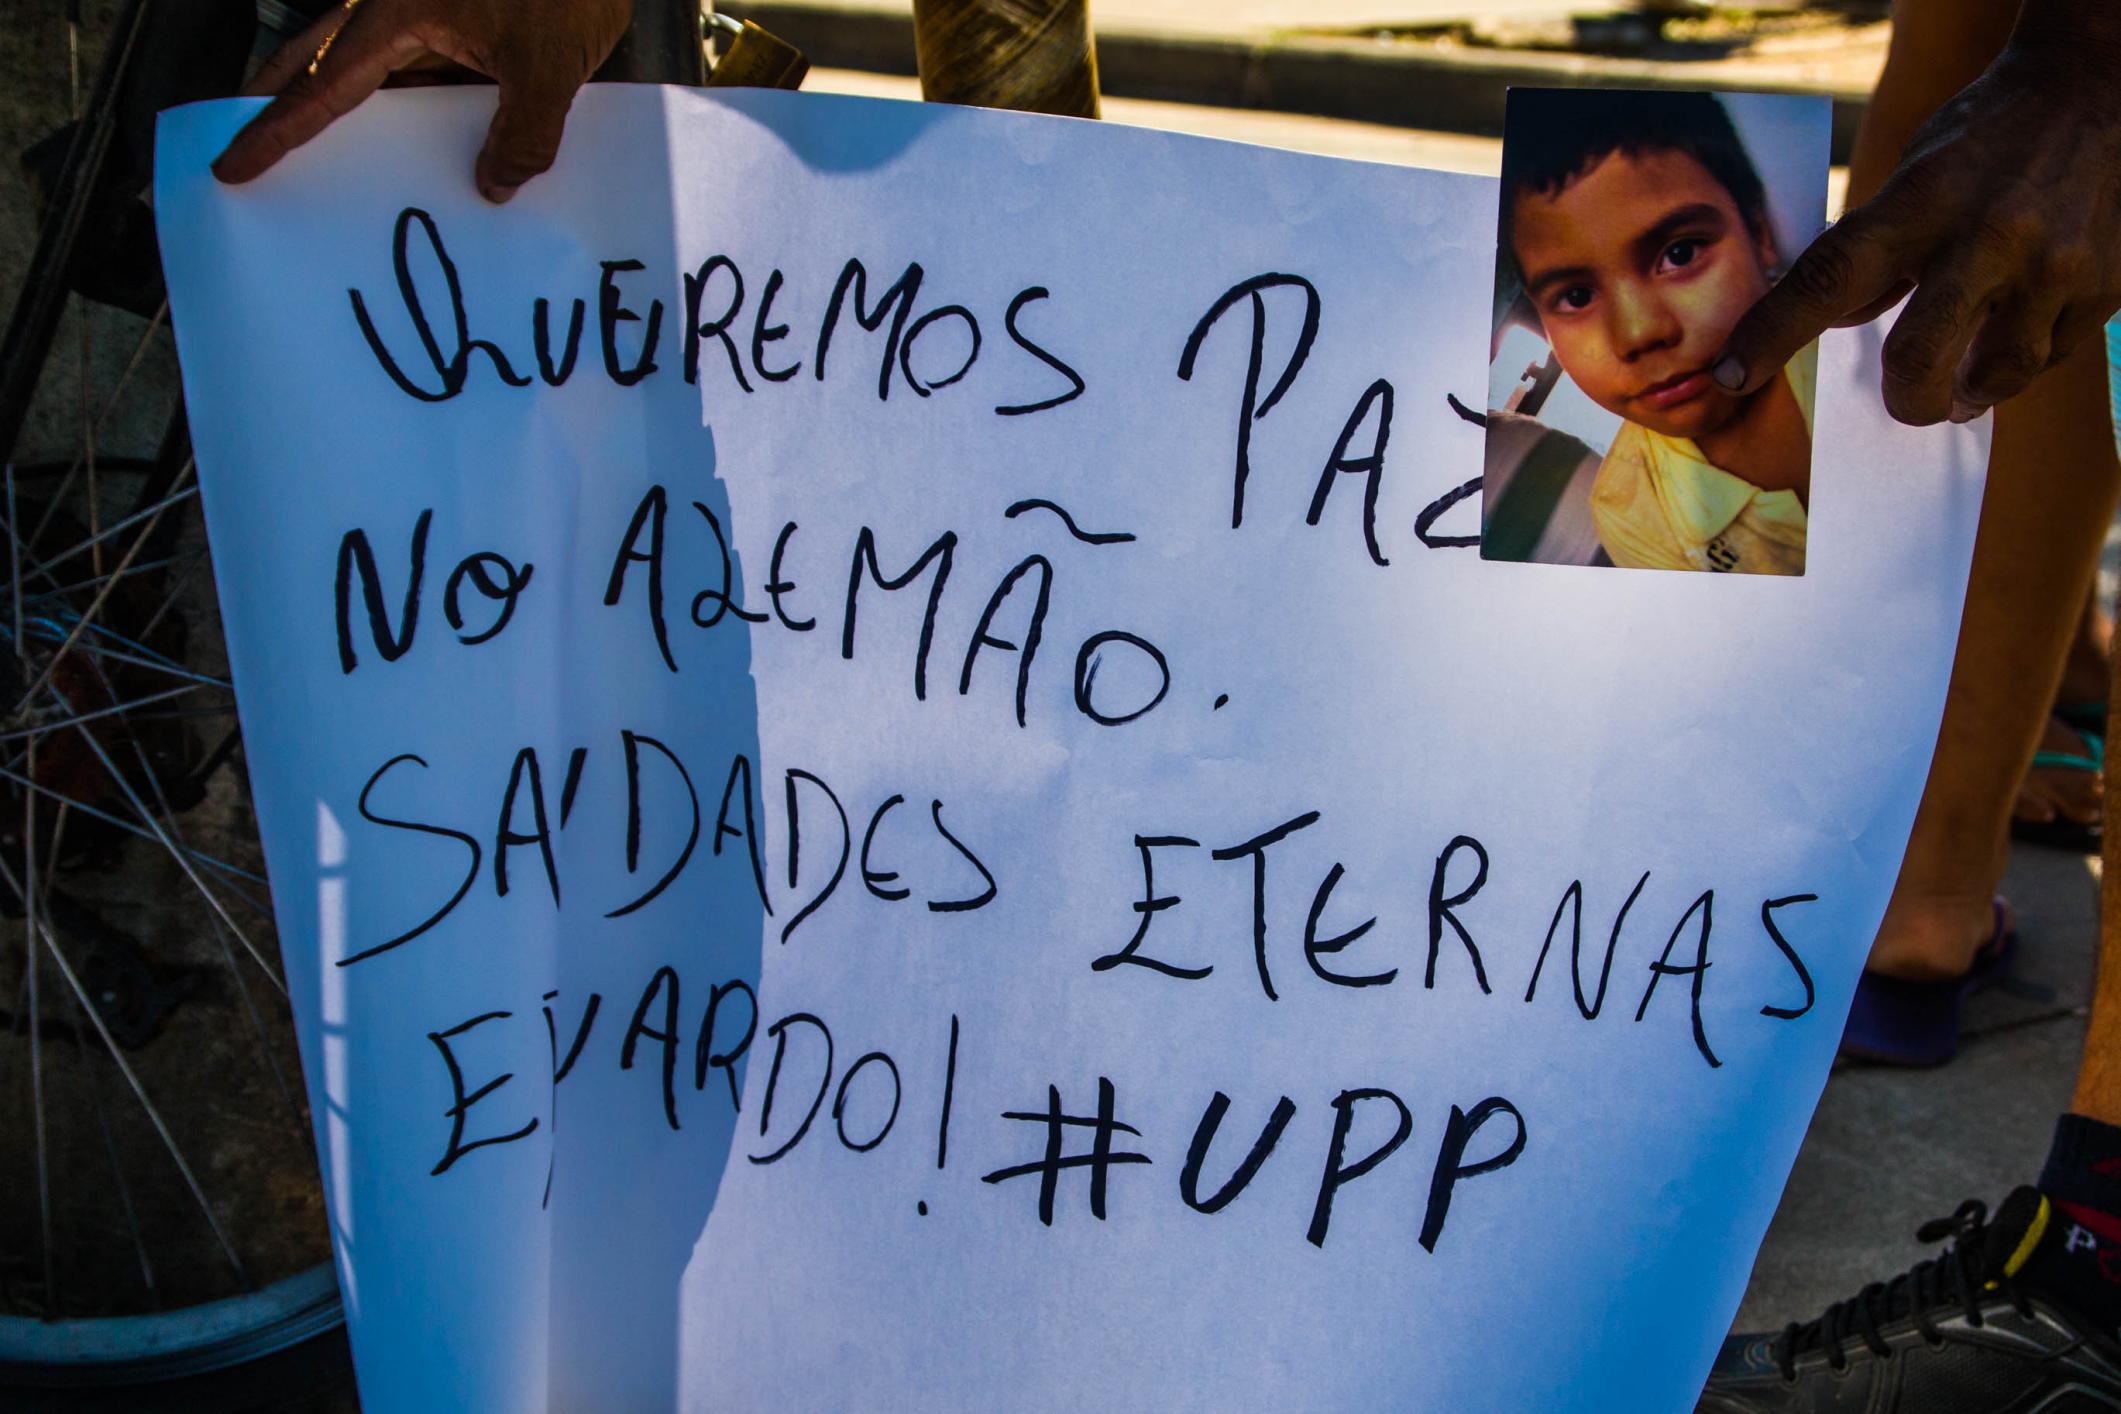 QUEREMOS PAZ
NO ALEMÃO.
SAÍDADES ETERNAS
EVARDO! #UPP